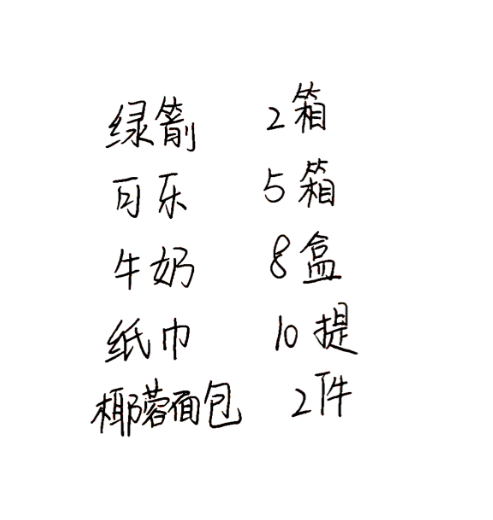 绿箭 2箱
可乐 5箱
牛奶 8盒
纸巾 10提
椰蓉面包 2件